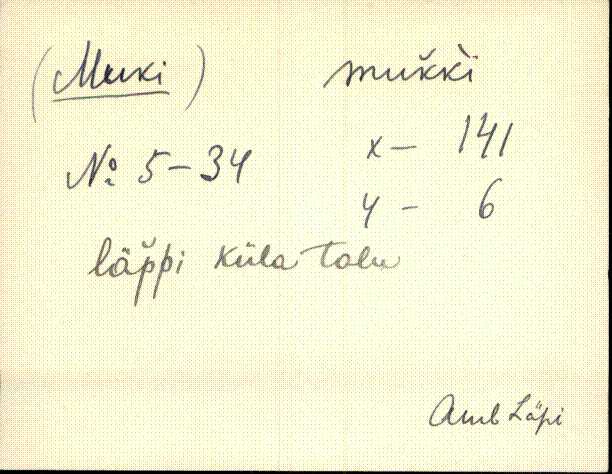 (Muki) mukk̀i
№ 5-34 x- 141
y- 6
läp̆pi küla talu
Amb Läpi